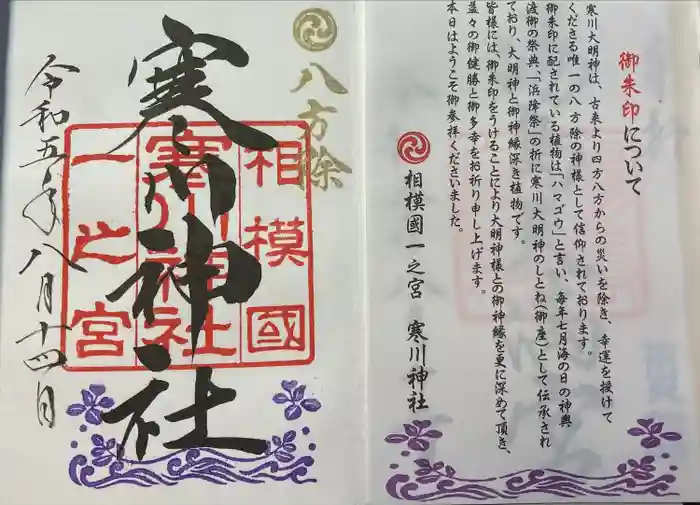 八方除
寒川神社
相模國
寒川神社
一之宮
令和五年八月十四日
御朱印について
寒川大明神は、古来より四方八方からの災いを除き、幸運を授けて
くださる唯一の八方除の神様として信仰されております。
御朱印に配されている植物は「ハマゴウ」と言い、毎年七月海の日の神輿
渡御の祭典、「浜降祭」の折に寒川大明神のしとね(御座)として伝承され
ており、大明神と御神縁深き植物です。
皆様には、御朱印をうけることにより大明神様との御神縁を更に深めて頂き、
益々の御健勝と御多幸をお祈り申し上げます。
本日はようこそ御参拝くださいました。
相模國一之宮 寒川神社